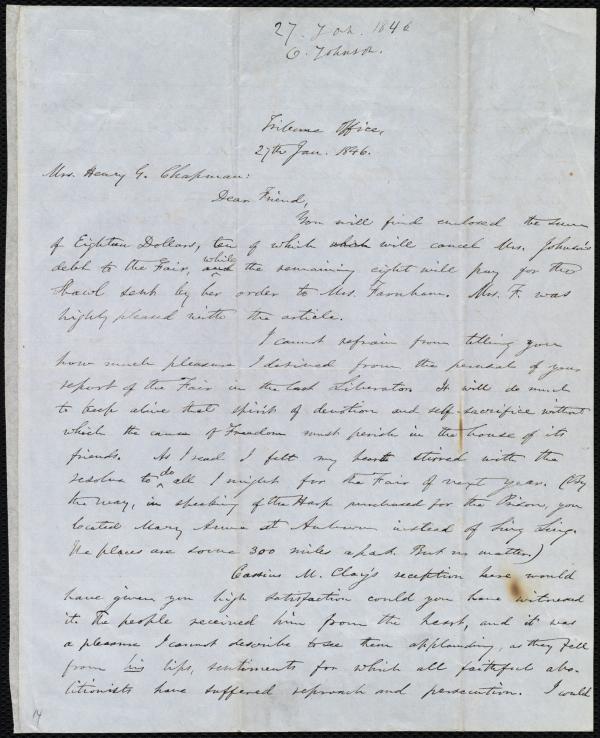 27. Jan. 1846
O. Johnson.
Tribune Office,
27th Jan. 1846.
Mrs. Henry G. Chapman:
Dear Friend,
You will find enclosed the sum
of Eighteen Dollars, ten of which will cancel Mrs. Johnson's
debt to the Fair, while the remaining eight will pay for the
Shawl sent by her order to Mrs. Farnham. Mrs. F. was
highly pleased with the article.
I cannot refrain from telling you
how much pleasure I derived from the perusal of your
report of the Fair in the last Liberator. It will do much
to keep alive that spirit of devotion and self-sacrifice without
which the cause of Freedom must perish in the house of its
friends. As I read I felt my heart stirred with the
resolve to do all I might for the Fair of next year. (By
the way, in speaking of the Harp purchased for the Prison, you
located Mary Anna at Auburn instead of Sing Sing.
The places are some 300 miles apart. But no matter.)
Cassius M. Clay's reception here would
have given you high satisfaction could you have witnessed
it. The people received him from the heart, and it was
a pleasure I cannot describe to see them applauding, as they fell
from his lips, sentiments for which all faithful abo-
litionists have suffered reproach and persecution. I would